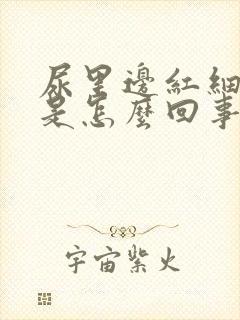 尿里邊紅細
是怎麼回事
宇宙紫火